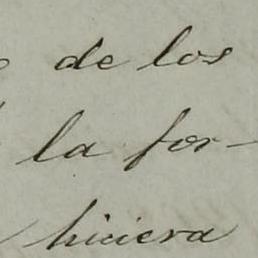 de los
la for-
hiciera